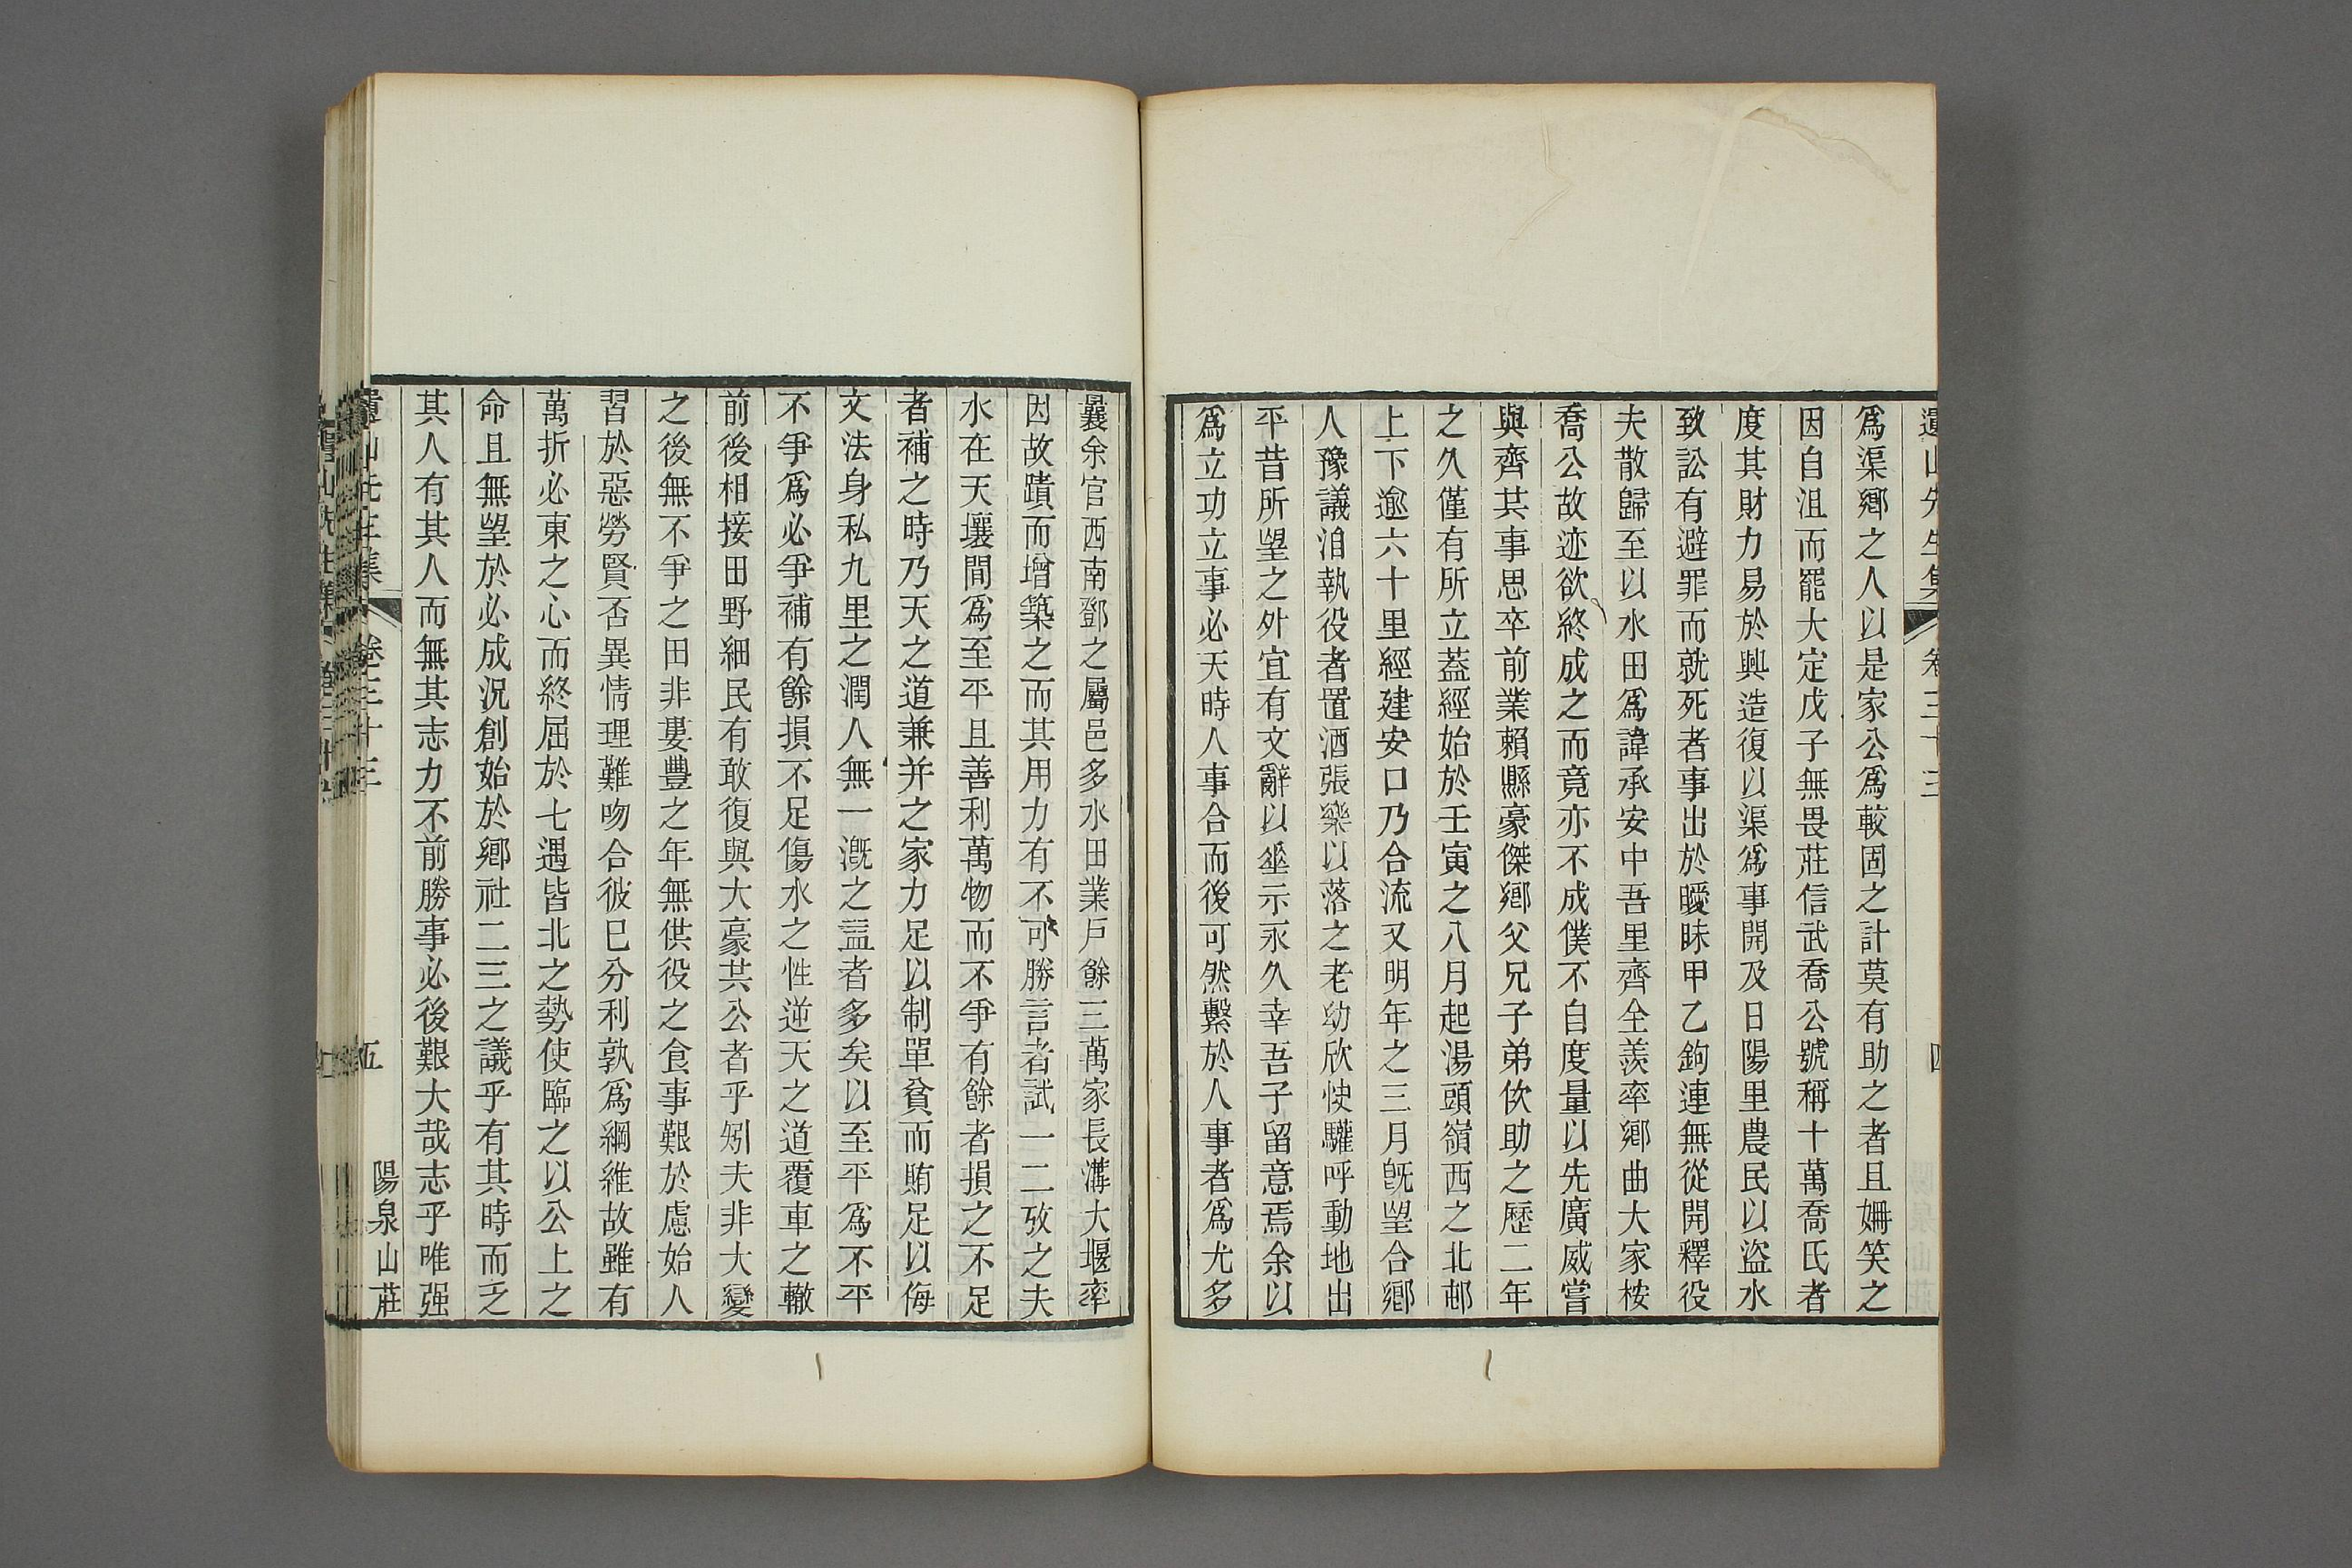 遺山先生集 卷三十三 四
爲渠鄉之人以是家公爲較固之計莫有助之者且姍笑之
因自沮而罷大定戊子無畏莊信武喬公號稱十萬喬氏者
度其財力易於興造復以渠爲事開及日陽里農民以盜水
致訟有避罪而就死者事出於曖昧甲乙鉤連無從開釋役
夫散歸至以水田爲諱承安中吾里齊全羨率鄉曲大家桉
喬公故迹欲終成之而竟亦不成僕不自度量以先廣威嘗
與齊共事思卒前業賴縣豪傑鄉父兄子弟佽助之歷二年
之久僅有所立蓋經始於壬寅之八月起湯頭嶺西之北邨
上下逾六十里經建安口乃合流又明年之三月旣望合鄉
人豫議洎執役者置酒張樂以落之老幼欣快驩呼動地出
平昔所望之外宜有文辭以垂示永久幸吾子留意焉余以
爲立功立事必天時人事合而後可然繫於人事者爲尤多
曩余官西南鄧之屬邑多水田業戶餘三萬家長溝大堰率
因故蹟而增築之而其用力有不可勝言者試一二攷之夫
水在天壤間爲至平且善利萬物而不爭有餘者損之不足
者補之時乃天之道兼并之家力足以制單貧而賄足以侮
文法身私九里之潤人無一漑之益者多矣以至平爲不平
不爭爲必爭補有餘損不足傷水之性逆天之道覆車之轍
前後相接田野細民有敢復與大豪共公者乎矧夫非大變
之後無不爭之田非婁豐之年無供役之食事艱於慮始人
習於惡勞賢否異情理難吻合彼巳分利孰爲綱維故雖有
萬折必東之心而終屈於七遇皆北之勢使臨之以公上之
命且無望於必成況創始於鄉社二三之議乎有其時而乏
其人有其人而無其志力不前勝事必後艱大哉志乎唯强
遺山先生集 卷三十三 五 陽泉山莊